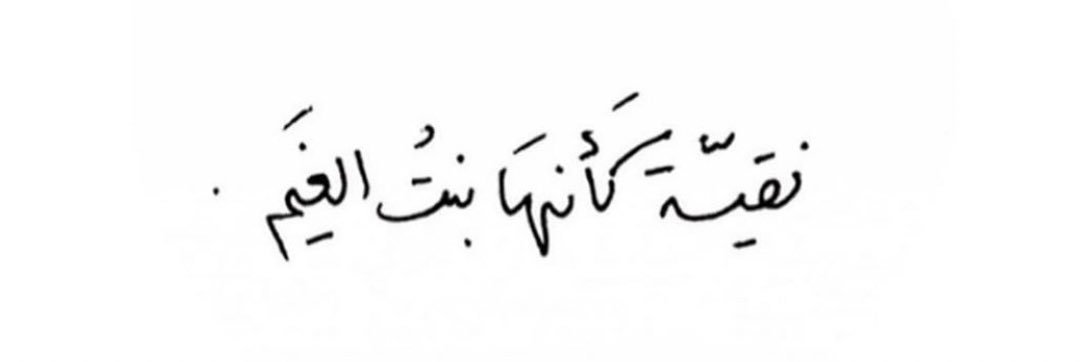 نقيّة كَأنهَا بنتُ الغَيم .